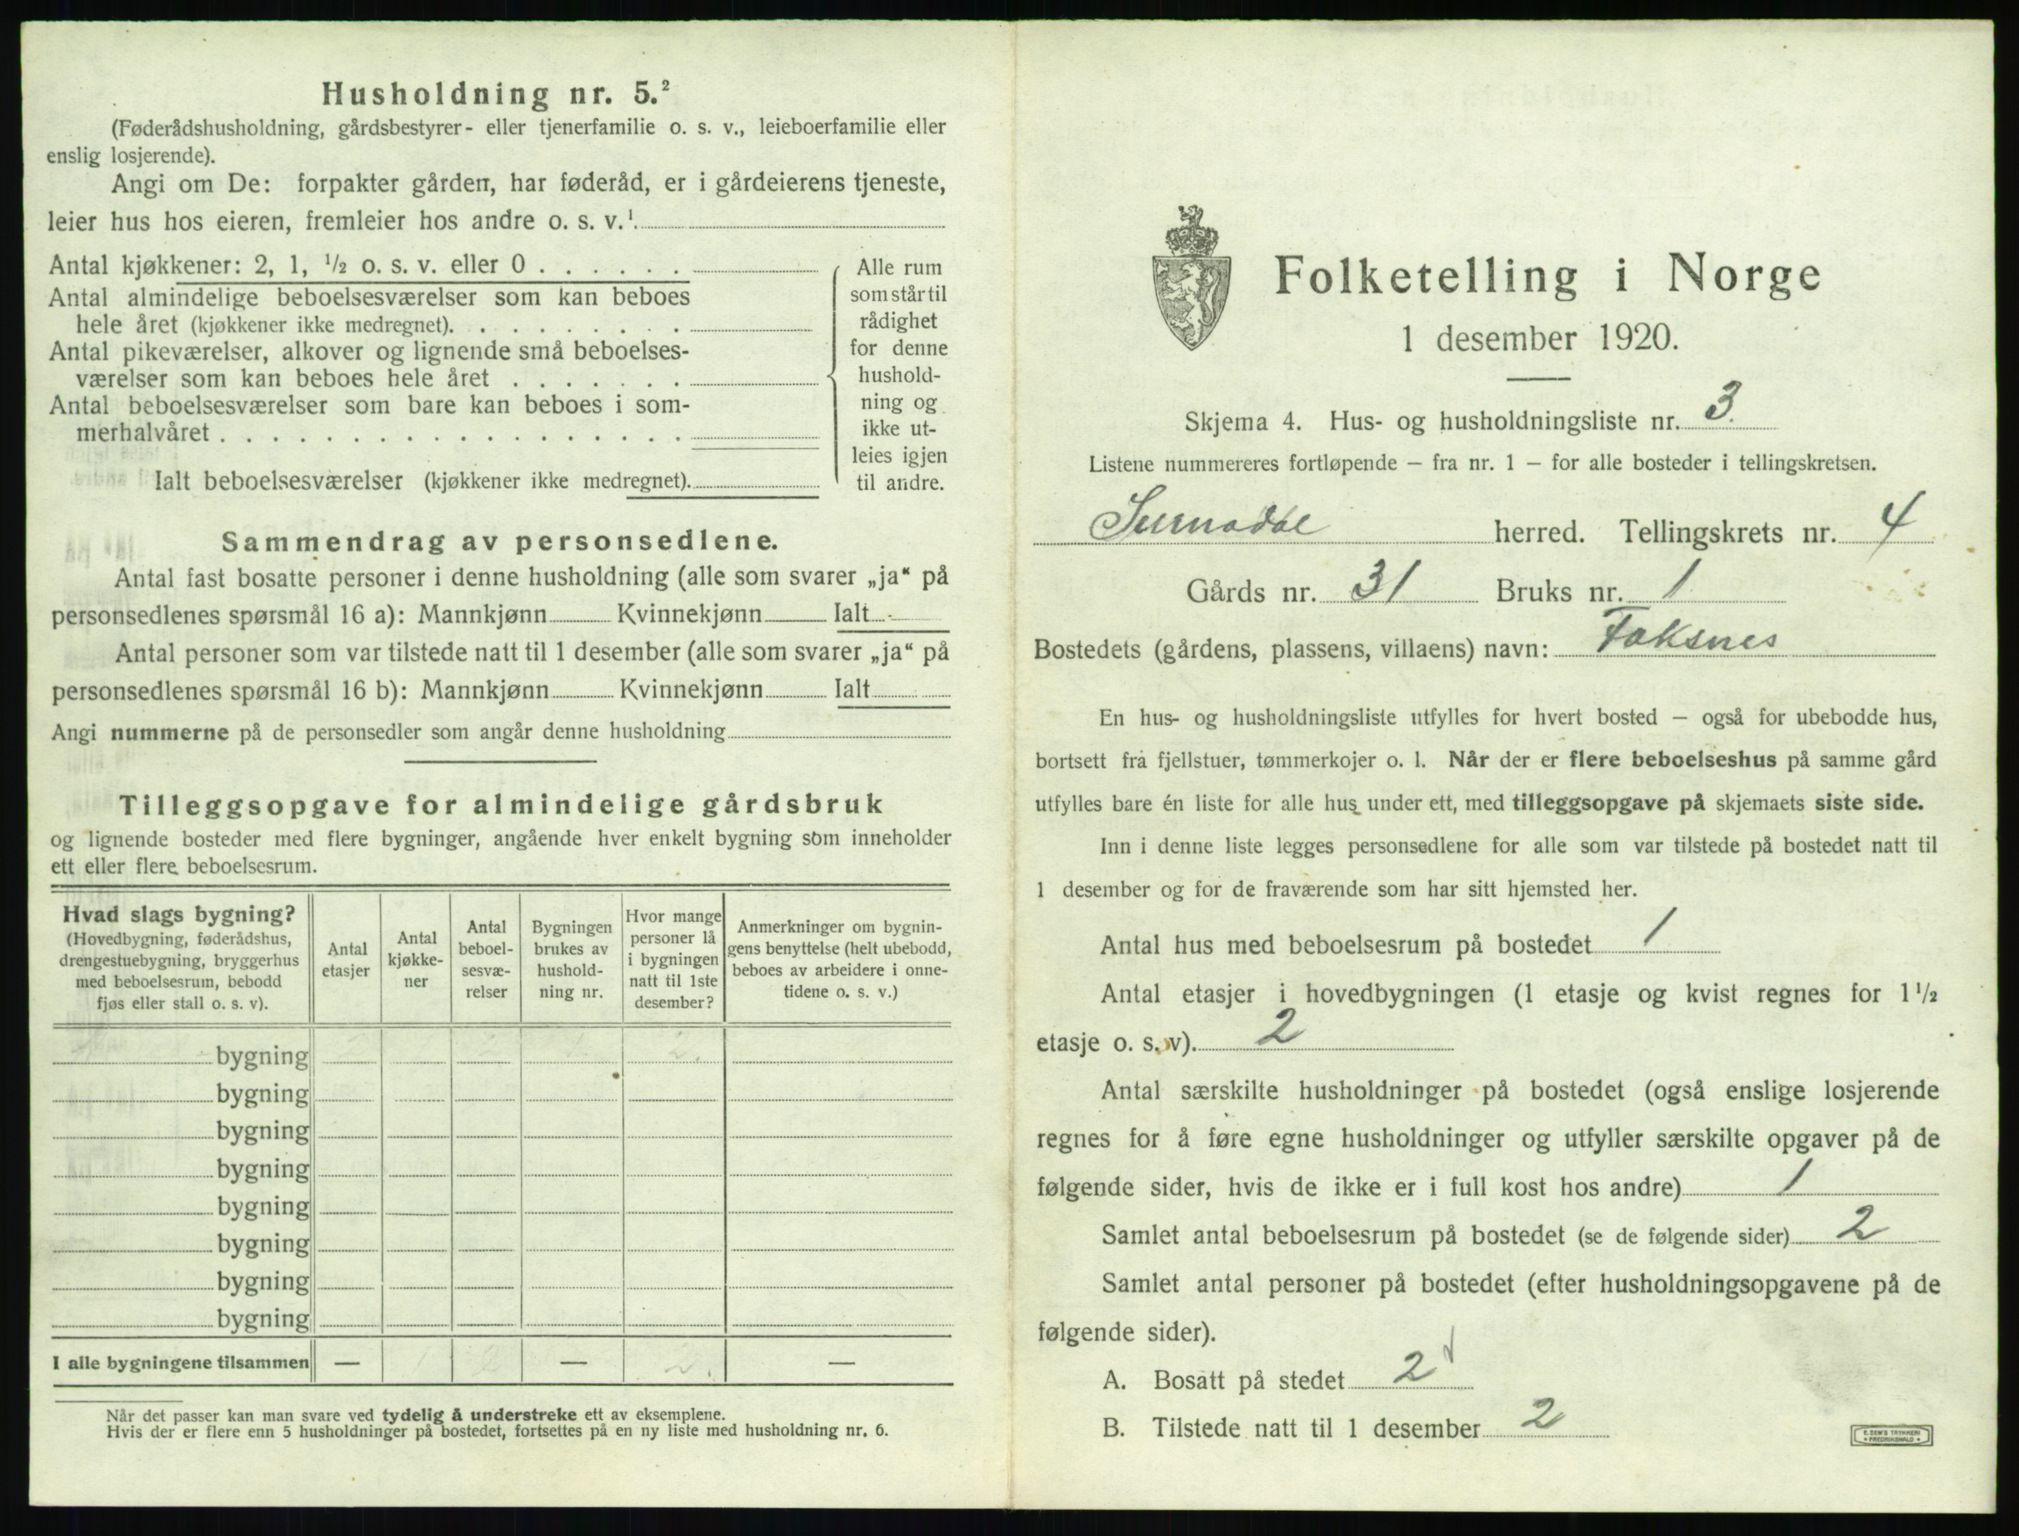 Husholdning nr. 5.²
(Føderådshusholdning, gårdsbestyrer- eller tjenerfamilie o. s. v., leieboerfamilie eller
enslig losjerende).
Angi om De: forpakter gården, har føderåd, er i gårdeierens tjeneste,
leier hus hos eieren, fremleier hos andre o. s. v.¹.
Antal kjøkkener: 2, 1, ½ o. s. v. eller 0 . . . . . .
Antal almindelige beboelsesværelser som kan beboes
hele året (kjøkkener ikke medregnet). . . . . . . . .
Antal pikeværelser, alkover og lignende små beboelses-
værelser som kan beboes hele året . . . . . . .
Antal beboelsesværelser som bare kan beboes i som-
merhalvåret . . . . . . . . . . . . . . . . . .
Ialt beboelsesværelser (kjøkkener ikke medregnet).
Alle rum
som står til
rådighet
for denne
hushold-
ning og
ikke ut-
leies igjen
til andre.
Sammendrag av personsedlene.
Antal fast bosatte personer i denne husholdning (alle som svarer „ja“ på
personsedlenes spørsmål 16 a): Mannkjønn Kvinnekjønn Ialt
Antal personer som var tilstede natt til 1 desember (alle som svarer „ja“ på
personsedlenes spørsmål 16 b): Mannkjønn Kvinnekjønn Ialt
Angi nummerne på de personsedler som angår denne husholdning
Tilleggsopgave for almindelige gårdsbruk
og lignende bosteder med flere bygninger, angående hver enkelt bygning som inneholder
ett eller flere beboelsesrum.
Hvad slags bygning?
(Hovedbygning, føderådshus,
drengestuebygning, bryggerhus
med beboelsesrum, bebodd
fjøs eller stall o. s. v).
Antal
etasjer
Antal
kjøkke-
ner
Antal
beboel-
sesvæ-
relser
Bygningen
brukes av
hushold-
ning nr.
Hvor mange
personer lå
i bygningen
natt til 1ste
desember?
Anmerkninger om bygnin-
gens benyttelse (helt ubebodd,
beboes av arbeidere i onne-
tidene o. s. v.)
bygning 2.
bygning
bygning
bygning
bygning
bygning
bygning
bygning
I alle bygningene tilsammen — 1 2 — 2. —
Når det passer kan man svare ved tydelig å understreke ett av eksemplene.
Hvis der er flere enn 5 husholdninger på bostedet, fortsettes på en ny liste med husholdning nr. 6.
Folketelling i Norge
1 desember 1920.
Skjema 4. Hus- og husholdningsliste nr. 3.
Listene nummereres fortløpende – fra nr. 1 – for alle bosteder i tellingskretsen.
Surnadal herred. Tellingskrets nr. 4
Gårds nr. 31 Bruks nr. 1
Bostedets (gårdens, plassens, villaens) navn: Faksnes
En hus- og husholdningsliste utfylles for hvert bosted – også for ubebodde hus,
bortsett fra fjellstuer, tømmerkojer o. l. Når der er flere beboelseshus på samme gård
utfylles bare én liste for alle hus under ett, med tilleggsopgave på skjemaets siste side.
Inn i denne liste legges personsedlene for alle som var tilstede på bostedet natt til
1 desember og for de fraværende som har sitt hjemsted her.
Antal hus med beboelsesrum på bostedet 1
Antal etasjer i hovedbygningen (1 etasje og kvist regnes for 1 ½
etasje o. s. v). 2
Antal særskilte husholdninger på bostedet (også enslige losjerende
regnes for å føre egne husholdninger og utfyller særskilte opgaver på de
følgende sider, hvis de ikke er i full kost hos andre) 1
Samlet antal beboelsesrum på bostedet (se de følgende sider) 2
Samlet antal personer på bostedet (efter husholdningsopgavene på de
følgende sider).
A. Bosatt på stedet 2
B. Tilstede natt til 1 desember 2
E. SEM'S TRYKKERI
FREDRIKSHALD